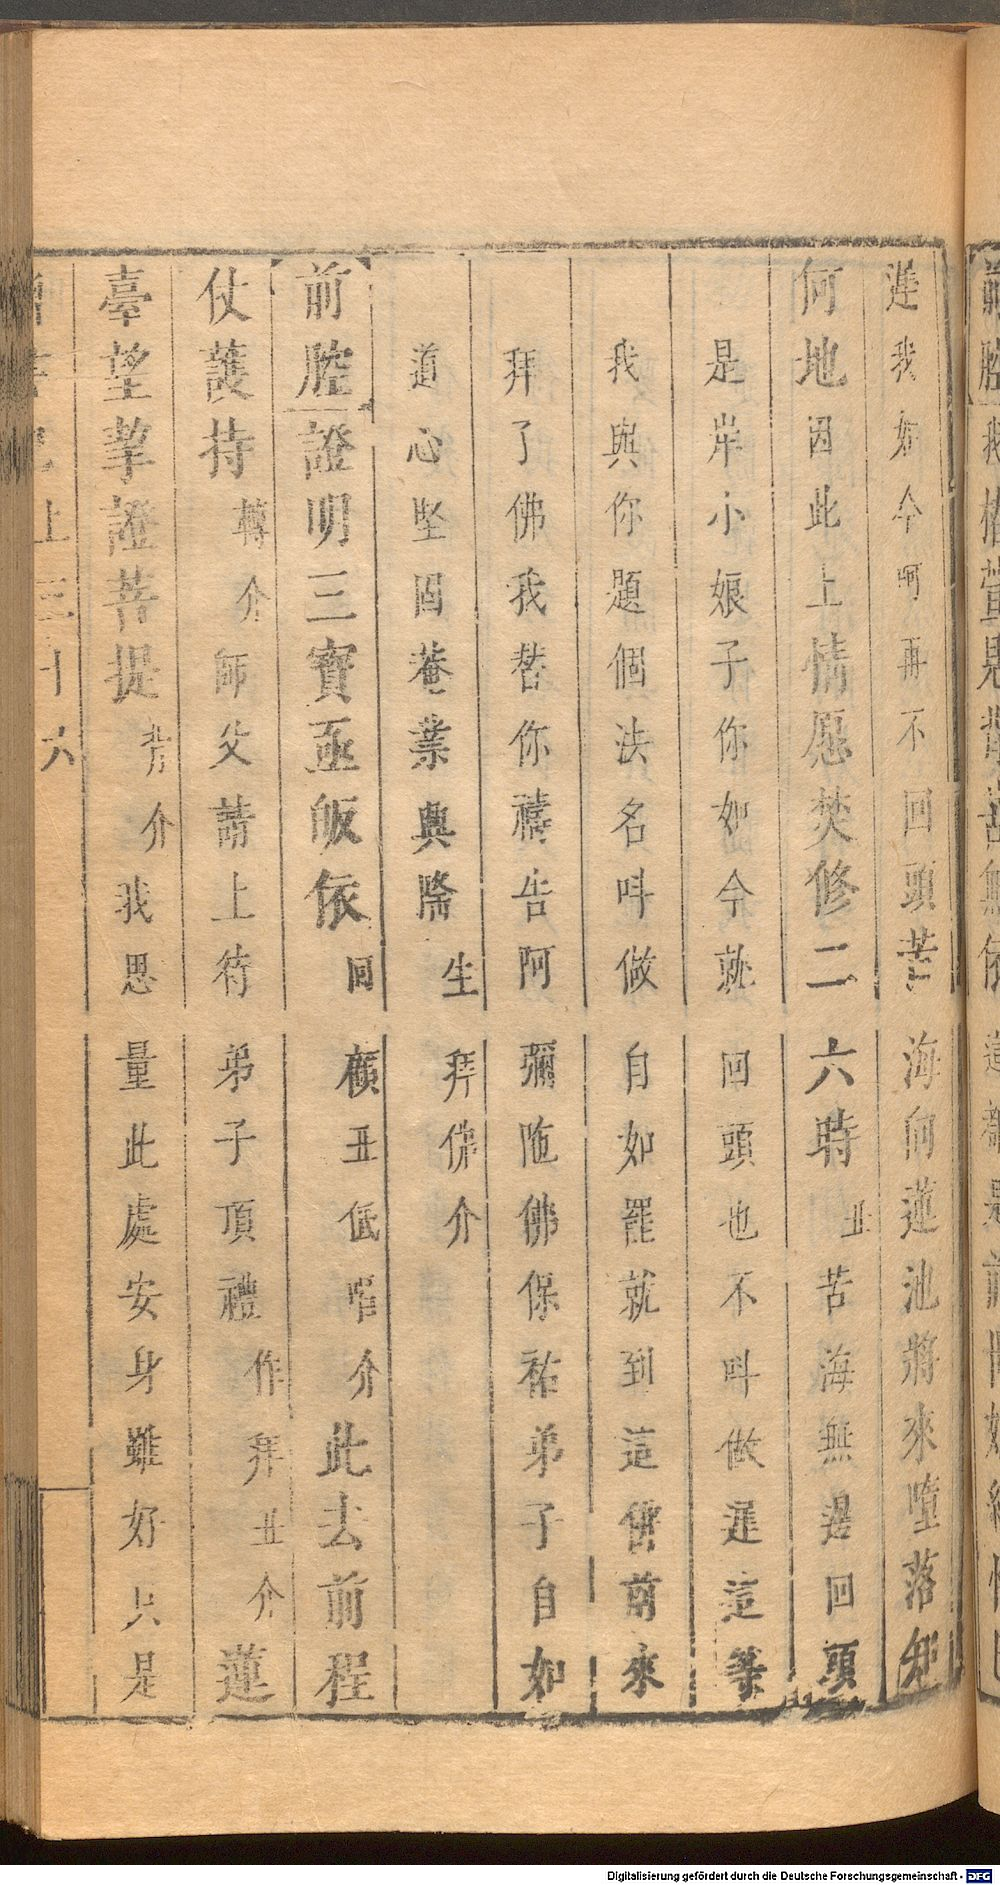 蓮我如今呵再不回頭苦海向蓮池將來墮落知
何地因此上情愿焚修二六時丑苦海無邊回頭
是岸小娘子你如今就回頭也不叫做遲這等
我與你題個法名叫做自如罷就到這佛前來
拜了佛我替你禱告阿彌陁佛保祐弟子自如
道心堅固菴業興隆生拜佛介
前腔證明三寶亟皈依回顧丑低唱介此去前程
仗護持轉介師父請上待弟子頂禮作拜丑介蓮
臺望拏證菩提背介我思量此處安身雖好只是
上三十六
前腔我